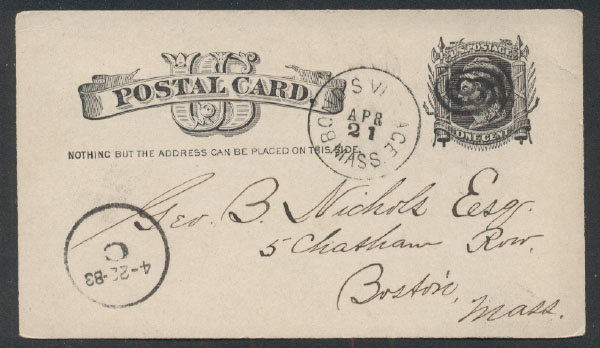 US
POSTAL CARD.
U.S. POSTAGE
ONE CENT
APR
21
MASS
NOTHING BUT THE ADDRESS CAN BE PLACED ON THIS SIDE.
Geo. B. Nichols Esq.
5 Chatham Row.
Boston,
Mass.
C